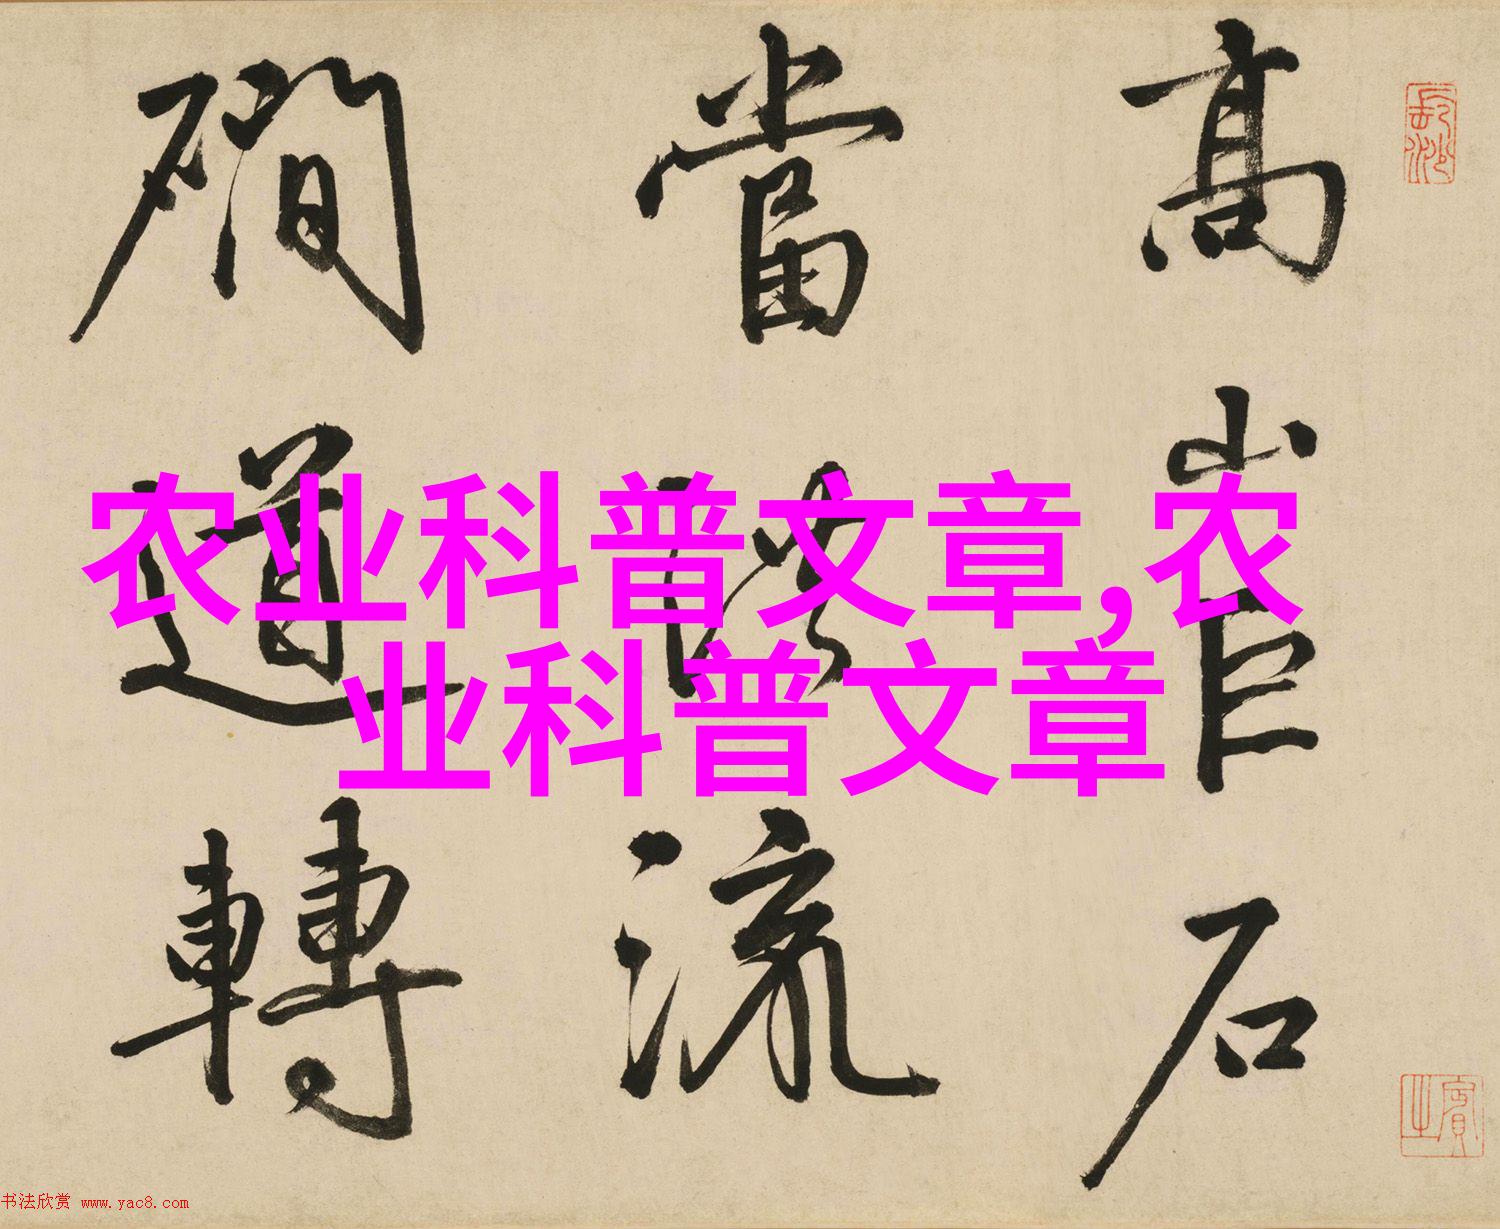 高岩石
當洪流
磵道轉
長沙
賓之
农业科普文章,农
业科普文章
书法欣赏 www.yac8.com